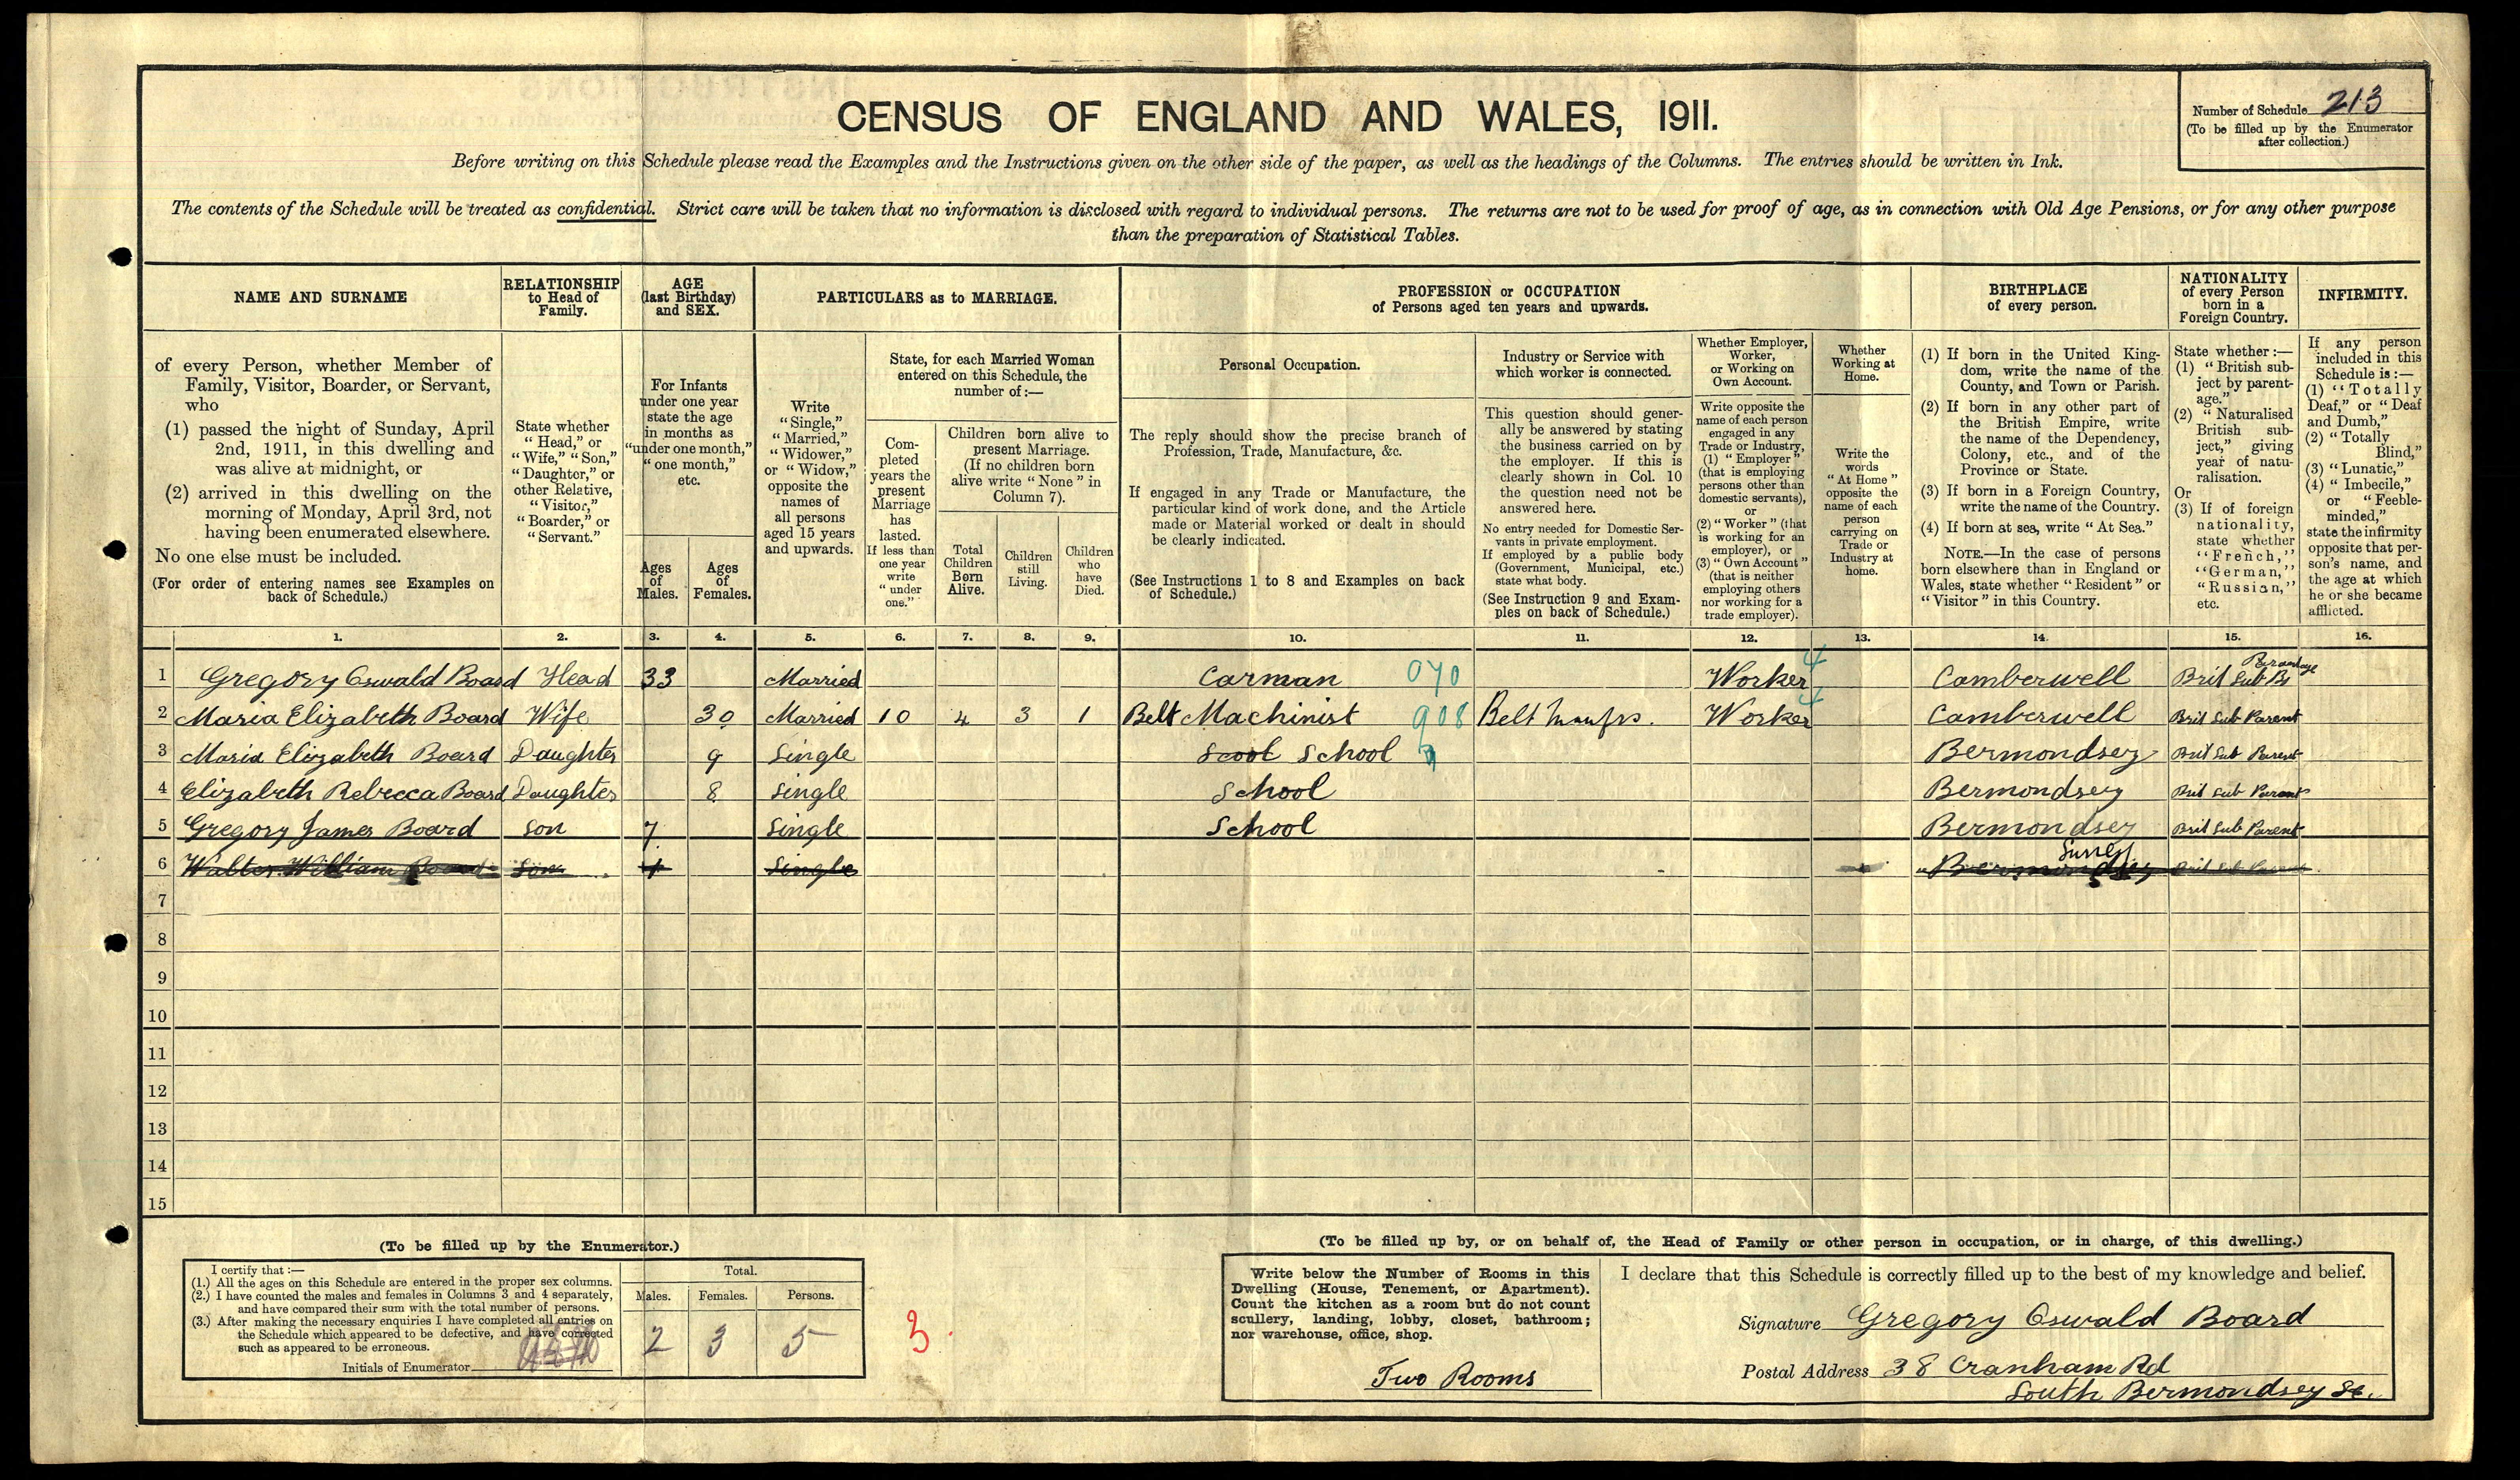 CENSUS OF ENGLAND AND WALES, 1911.
Number of Schedule 213
(To be filled up by the Enumerator
after collection.)
Before writing on this Schedule please read the Examples and the Instructions given on the other side of the paper, as well as the headings of the Columns. The entries should be written in Ink.
The contents of the Schedule will be treated as confidential. Strict care will be taken that no information is disclosed with regard to individual persons. The returns are not to be used for proof of age, as in connection with Old Age Pensions, or for any other purpose
than the preparation of Statistical Tables.
NAME AND SURNAME
of every Person, whether Member of
Family, Visitor, Boarder, or Servant,
who
(1) passed the night of Sunday, April
2nd, 1911, in this dwelling and
was alive at midnight, or
(2) arrived in this dwelling on the
morning of Monday, April 3rd, not
having been enumerated elsewhere.
No one else must be included.
(For order of entering names see Examples on
back of Schedule.)
RELATIONSHIP
to Head of
Family.
State whether
"Head," or
"Wife," "Son,"
"Daughter," or
other Relative,
"Visitor,"
"Boarder," or
"Servant."
AGE
(last Birthday)
and SEX.
For Infants
under one year
state the age
in months as
"under one month,"
"one month,"
etc.
Ages
of
Males.
Ages
of
Females.
PARTICULARS as to MARRIAGE.
Write
"Single,"
"Married,"
"Widower,"
or "Widow,"
opposite the
names of
all persons
aged 15 years
and upwards.
State, for each Married Woman
entered on this Schedule, the
number of:—
Com-
pleted
years the
present
Marriage
has
lasted.
If less than
one year
write
"under
one."
Children born alive to
present Marriage.
(If no children born
alive write "None" in
Column 7).
Total
Children
Born
Alive.
Children
still
Living.
Children
who
have
Died.
PROFESSION or OCCUPATION
of Persons aged ten years and upwards.
Personal Occupation.
The reply should show the precise branch of
Profession, Trade, Manufacture, &c.
If engaged in any Trade or Manufacture, the
particular kind of work done, and the Article
made or Material worked or dealt in should
be clearly indicated.
(See Instructions 1 to 8 and Examples on back
of Schedule.)
Industry or Service with
which worker is connected.
This question should gener-
ally be answered by stating
the business carried on by
the employer. If this is
clearly shown in Col. 10
the question need not be
answered here.
No entry needed for Domestic Ser-
vants in private employment.
If employed by a public body
(Government, Municipal, etc.)
state what body.
(See Instruction 9 and Exam-
ples on back of Schedule.)
Whether Employer,
Worker,
or Working on
Own Account.
Write opposite the
name of each person
engaged in any
Trade or Industry,
(1) "Employer"
(that is employing
persons other than
domestic servants),
or
(2) "Worker" (that
is working for an
employer), or
(3) "Own Account"
(that is neither
employing others
nor working for a
trade employer).
Whether
Working at
Home.
Write the
words
"At Home"
opposite the
name of each
person
carrying on
Trade or
Industry at
home.
BIRTHPLACE
of every person.
(1) If born in the United King-
dom, write the name of the
County, and Town or Parish.
(2) If born in any other part of
the British Empire, write
the name of the Dependency,
Colony, etc., and of the
Province or State.
(3) If born in a Foreign Country,
write the name of the Country.
(4) If born at sea, write "At Sea."
NOTE.—In the case of persons
born elsewhere than in England or
Wales, state whether "Resident" or
"Visitor" in this Country.
NATIONALITY
of every Person
born in a
Foreign Country.
State whether:—
(1) "British sub-
ject by parent-
age."
(2) "Naturalised
British sub-
ject," giving
year of natu-
ralisation.
Or
(3) If of foreign
nationality,
state whether
"French,"
"German,"
"Russian,"
etc.
INFIRMITY.
If any person
included in this
Schedule is:—
(1) "Totally
Deaf," or "Deaf
and Dumb,"
(2) "Totally
Blind,"
(3) "Lunatic,"
(4) "Imbecile,"
or "Feeble-
minded,"
state the infirmity
opposite that per-
son's name, and
the age at which
he or she became
afflicted.
1. 2. 3. 4. 5. 6. 7. 8. 9. 10. 11. 12. 13. 14. 15. 16.
1 Gregory Oswald Board Head 33 Married Carman 070 Worker 4 Camberwell Brit Sub By Parentage
2 Maria Elizabeth Board Wife 30 Married 10 4 3 1 Belt Machinist 908 Belt Manfrs. Worker 4 Camberwell Brit Sub Parent
3 Maria Elizabeth Board Daughter 9 Single Scool School Bermondsey Brit Sub Parent
4 Elizabeth Rebecca Board Daughter 8 Single School Bermondsey Brit Sub Parent
5 Gregory James Board Son 7 Single School Bermondsey Brit Sub Parent
6 Walter William Board Son Single Bermondsey Surrey Brit Sub Parent
7
8
9
10
11
12
13
14
15
(To be filled up by the Enumerator.)
I certify that:—
(1.) All the ages on this Schedule are entered in the proper sex columns.
(2.) I have counted the males and females in Columns 3 and 4 separately,
and have compared their sum with the total number of persons.
(3.) After making the necessary enquiries I have completed all entries on
the Schedule which appeared to be defective, and have corrected
such as appeared to be erroneous.
Initials of Enumerator
Total.
Males. Females. Persons.
2 3 5
3
(To be filled up by, or on behalf of, the Head of Family or other person in occupation, or in charge, of this dwelling.)
Write below the Number of Rooms in this
Dwelling (House, Tenement, or Apartment).
Count the kitchen as a room but do not count
scullery, landing, lobby, closet, bathroom;
nor warehouse, office, shop.
Two Rooms
I declare that this Schedule is correctly filled up to the best of my knowledge and belief.
Signature Gregory Oswald Board
Postal Address 38 Cranham Rd
South Bermondsey Se.